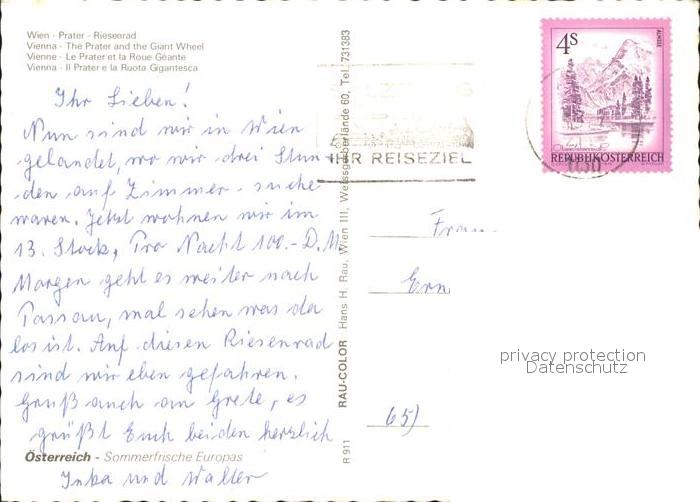 Wien - Prater - Riesenrad
Vienna - The Prater and the Giant Wheel
Vienne - Le Prater et la Roue Géante
Vienna - Il Prater e la Ruota Gigantesca
Ihr Lieben!
Nun sind wir in Wien
gelandet, wo wir drei Stun-
den auf Zimmer-suche
waren. Jetzt wohnen wir im
13. Stock, Pro Nacht 100.- D.M.
Morgen geht es weiter nach
Passau, mal sehen was da
los ist. Auf diesen Riesenrad
sind wir eben gefahren.
Gruß auch an Grete, es
grüßt Euch beiden herzlich
Österreich - Sommerfrische Europas
Inka und Walter
R 911
RAU-COLOR Hans H. Rau, Wien III, Weissgerberlände 60, Tel. 731383
IHR REISEZIEL
4S
ALMSEE
REPUBLIK ÖSTERREICH
1030
Frau
Ern
65)
privacy protection
Datenschutz